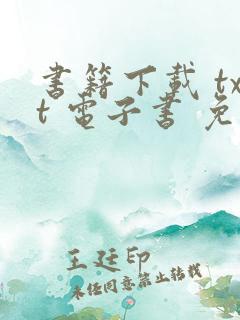 書籍下載 tx
t 電子書 免
王廷印
未經同意禁止轉載